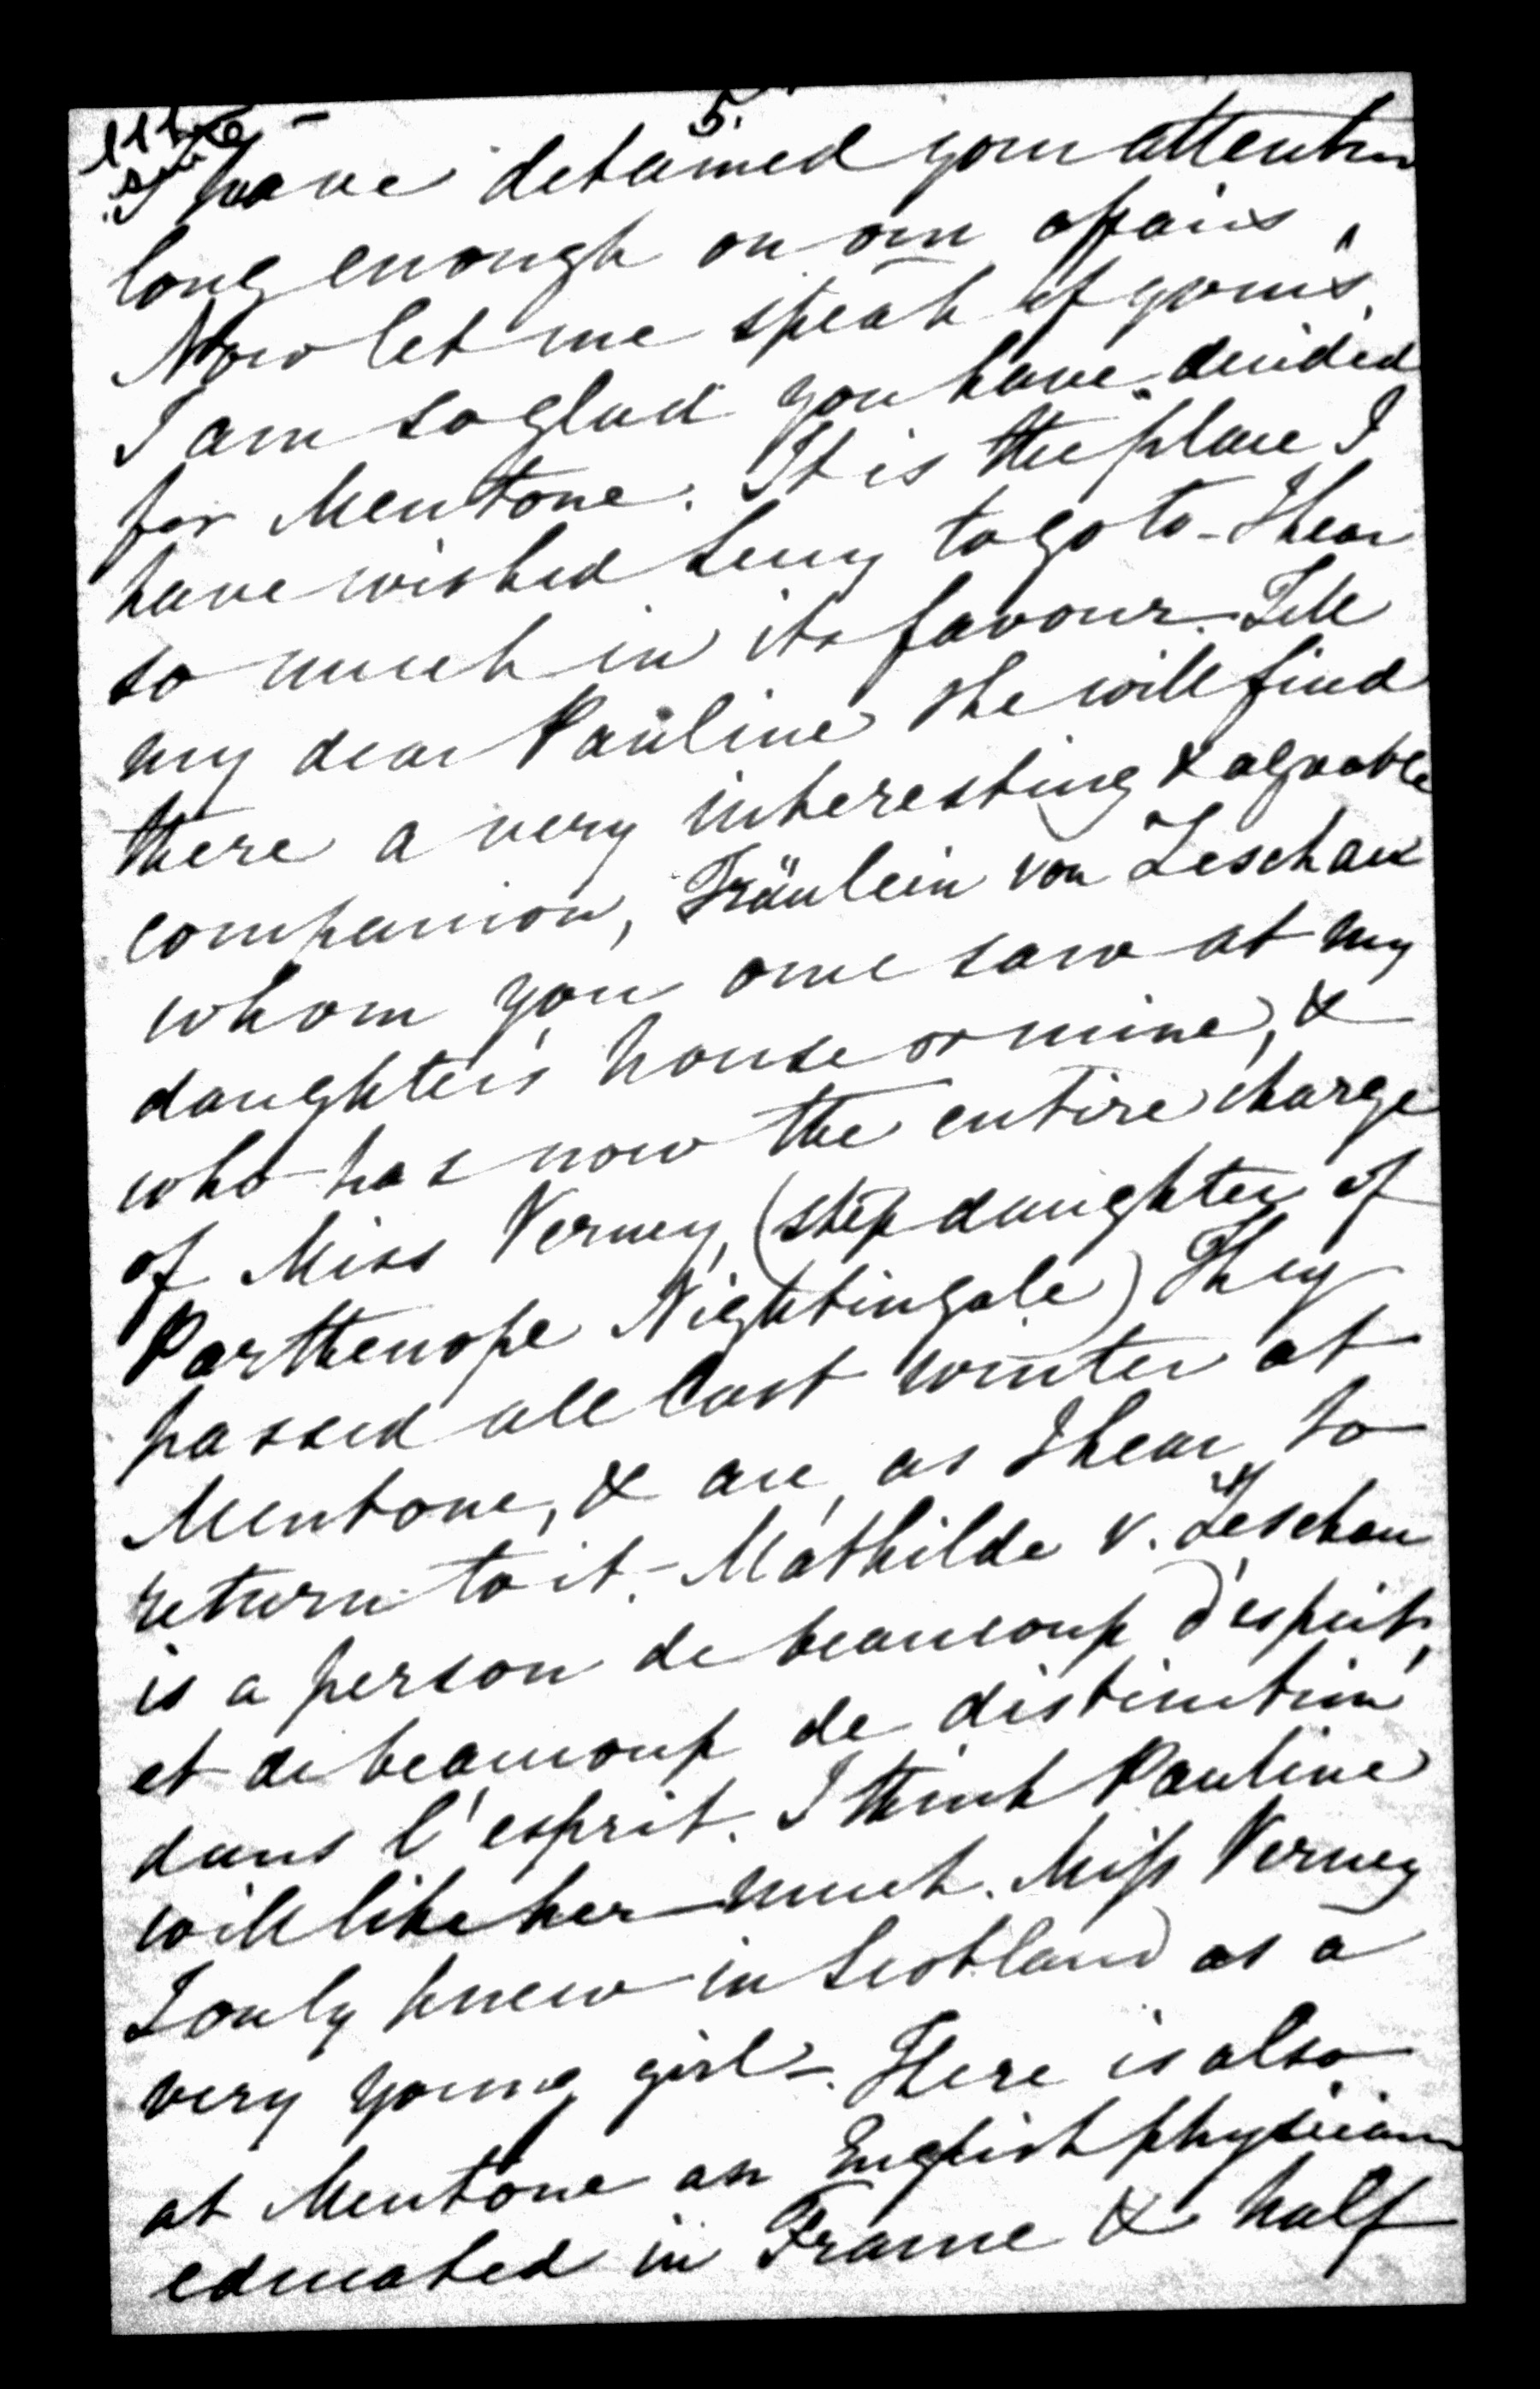 5.
I have detained your attention
long enough on our affairs,
Now let me speak of yours.
I am so glad you have decided
for Mentone. It is the place I
have wished to go to - I hear
so much in its favour. Tell
my dear Pauline she will find
there a very interesting & agreeable
companion, Fräulein von Zeschau
whom you once saw at my
daughter's house or mine, &
who has now the entire charge
of Miss Verney, (step daughter of
Parthenope Nightingale) They
passed all last winter at
Mentone, & are, as I hear, to
return to it. - Mathilde v. Zeschau
is a person de beaucoup d'esprit,
et de beaucoup de distinction
dans l'esprit. I think Pauline
will like her much. Miss Verney
I only knew in Scotland as a
very young girl -. There is also
at Mentone an English physician
educated in France & half